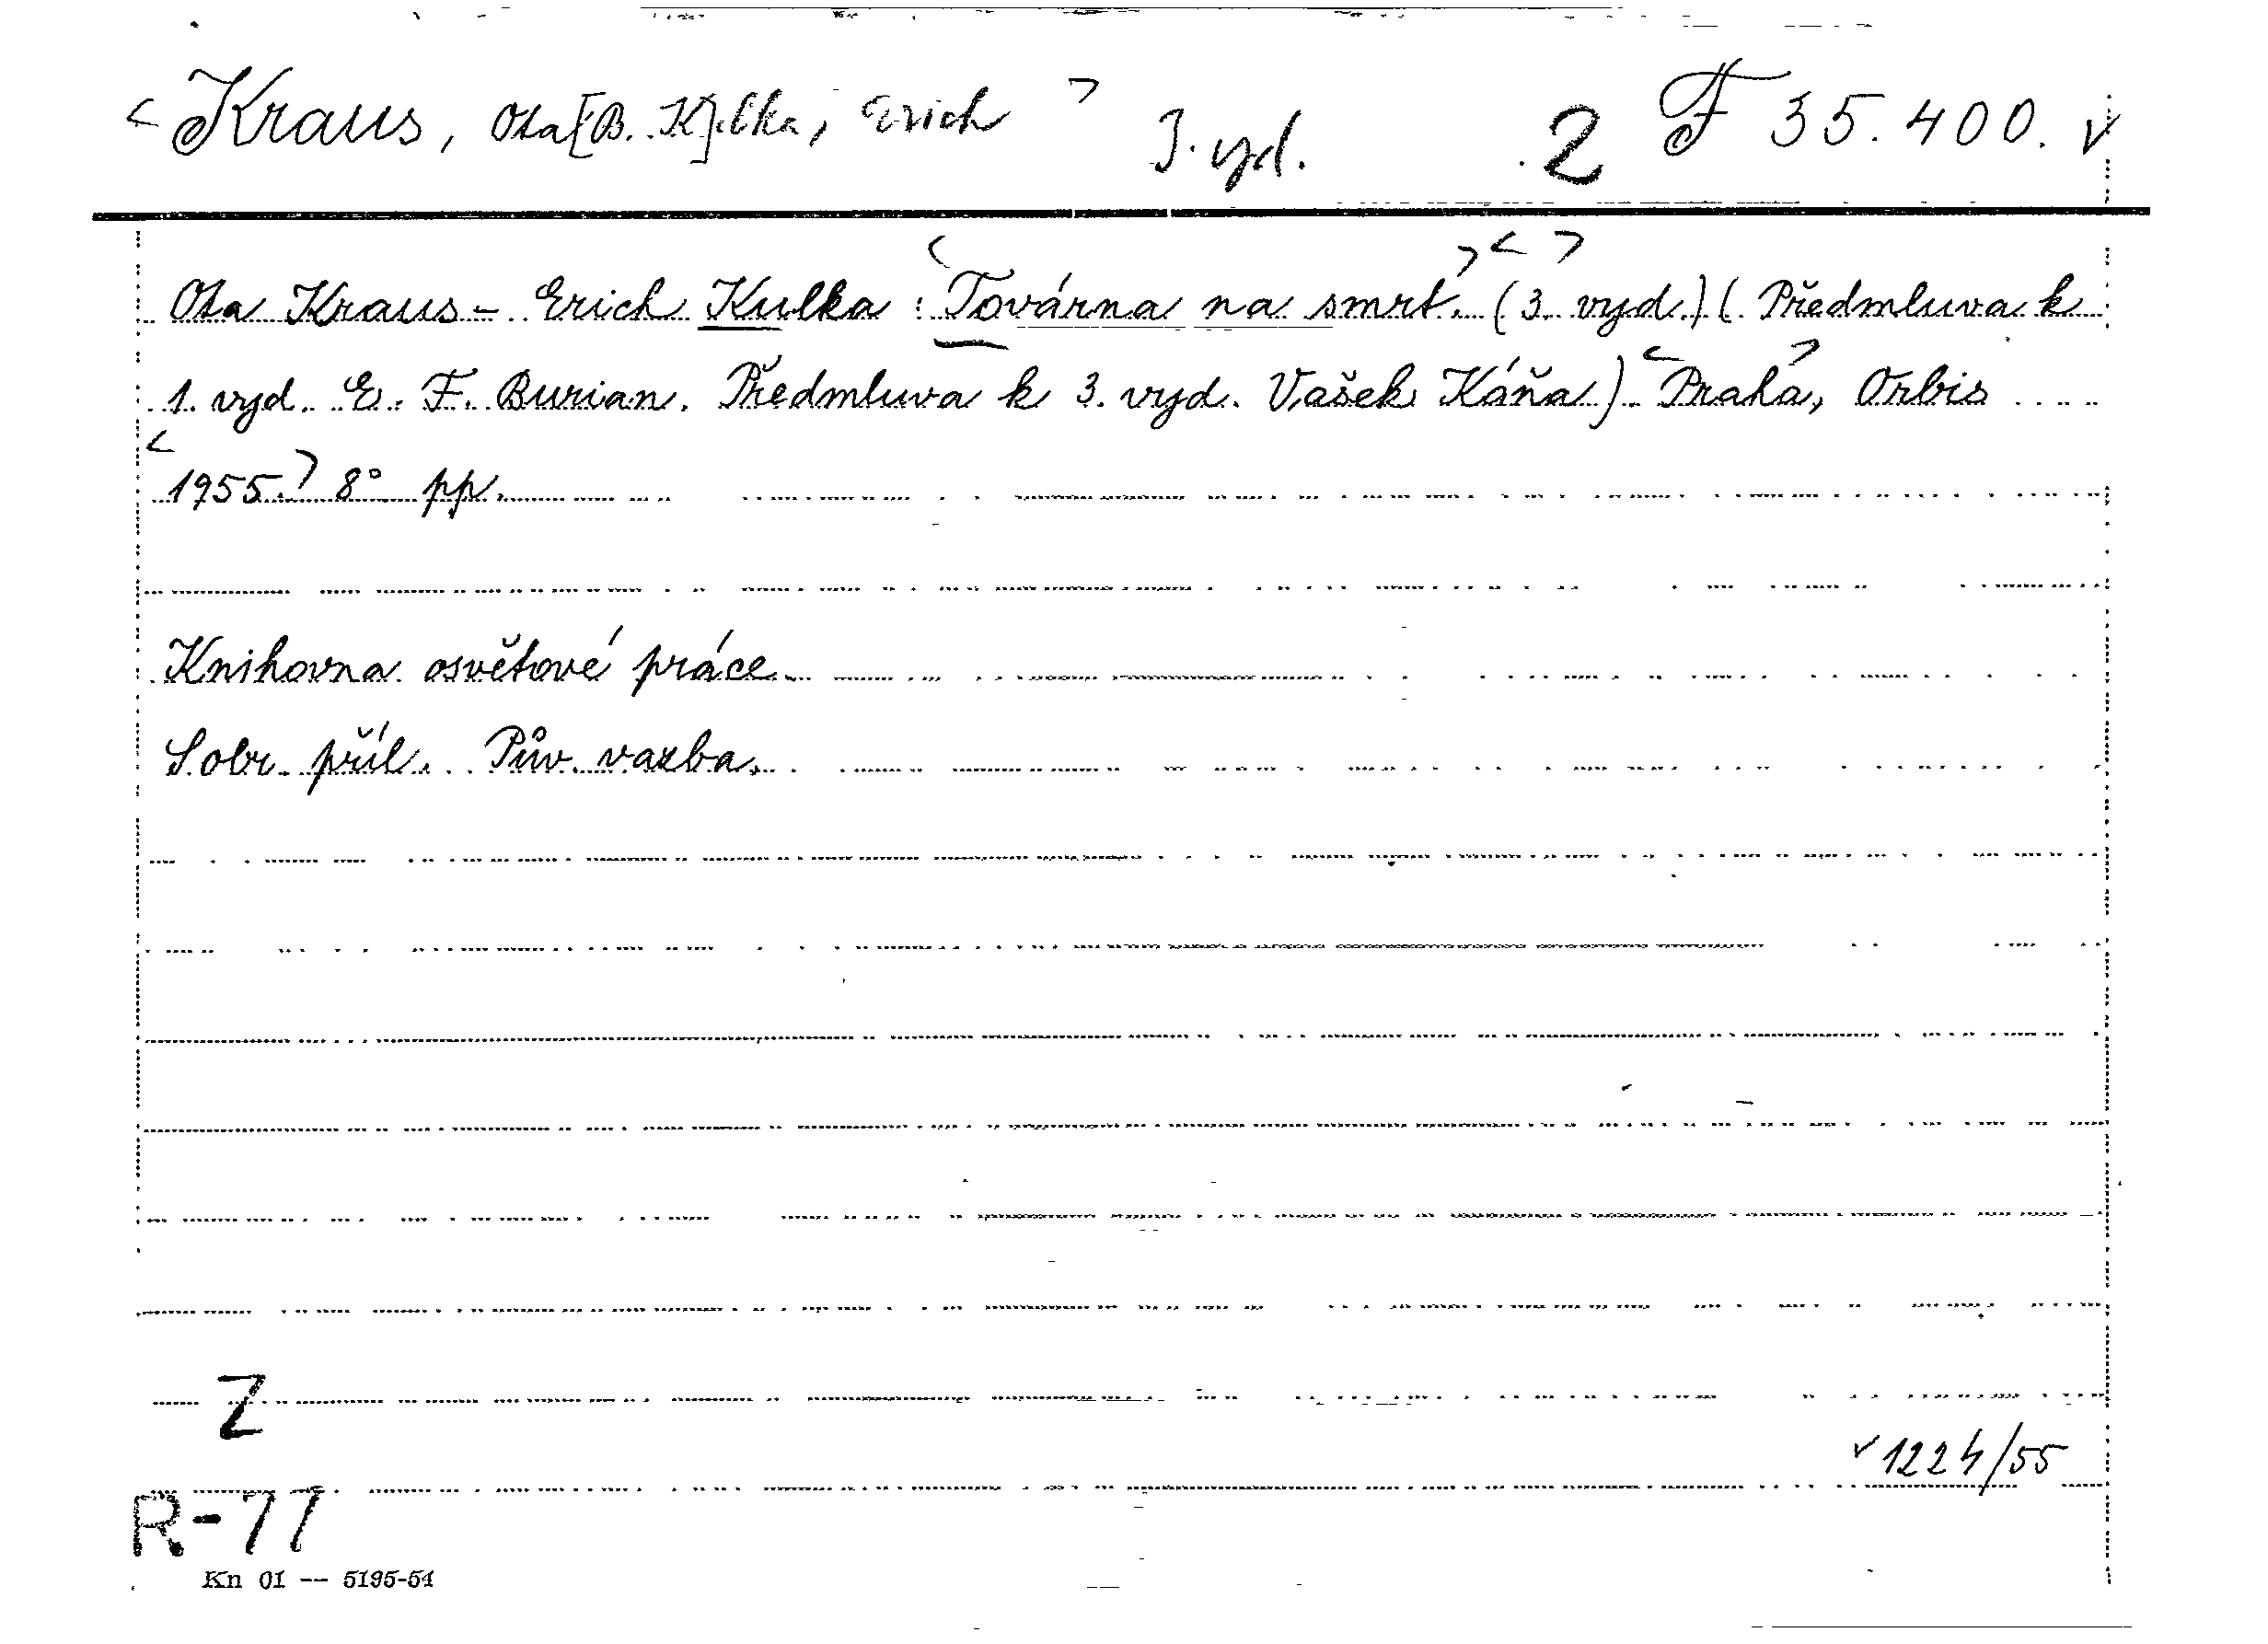 < Kraus, Ota [B. K]ulka, Erich > 3. vyd. 2 F 35.400. v
Ota Kraus - Erich Kulka : <Továrna na smrt.> <(3. vyd.)> (Předmluva k
1. vyd. E. F. Burian. Předmluva k 3. vyd. Vašek Káňa) <Praha>, Orbis
<1955.> 8° pp.
Knihovna osvětové práce.
Sobr. příl. Pův. vazba.
Z
v 1224/55
R-77
Kn 01 -- 5195-54